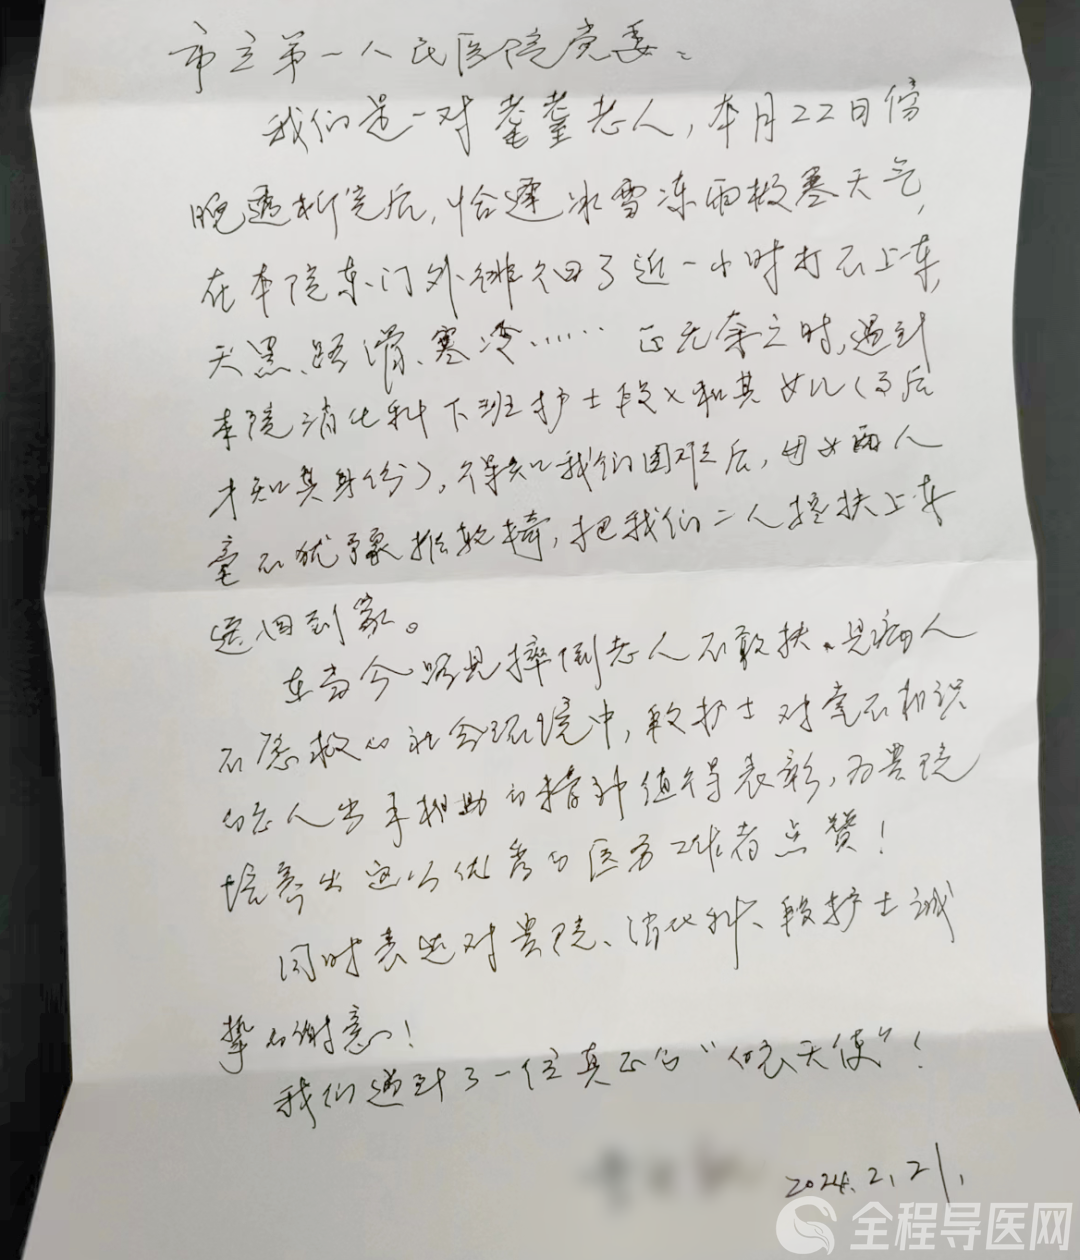 市立第一人民医院党委：
我们是一对耄耋老人，本月22日傍
晚透析完后，恰逢冰雪冻雨极寒天气，
在本院东门外徘徊了近一小时打不上车，
天黑、路滑、寒冷……正无奈之时，遇到
本院消化科下班护士段×和其女儿（了后
才知其身份），得知我们困难后，母女两人
毫不犹豫推轮椅，把我们二人搀扶上车
送回到家。
在当今路见摔倒老人不敢扶、见病人
不愿救的社会环境中，段护士对毫不相识
的老人出手相助的精神值得表彰，为贵院
培养出这么优秀的医务工作者点赞！
同时表达对贵院、消化科、段护士诚
挚的谢意！
我们遇到了一位真正的“白衣天使”！
2024.2.21.
全程导医网